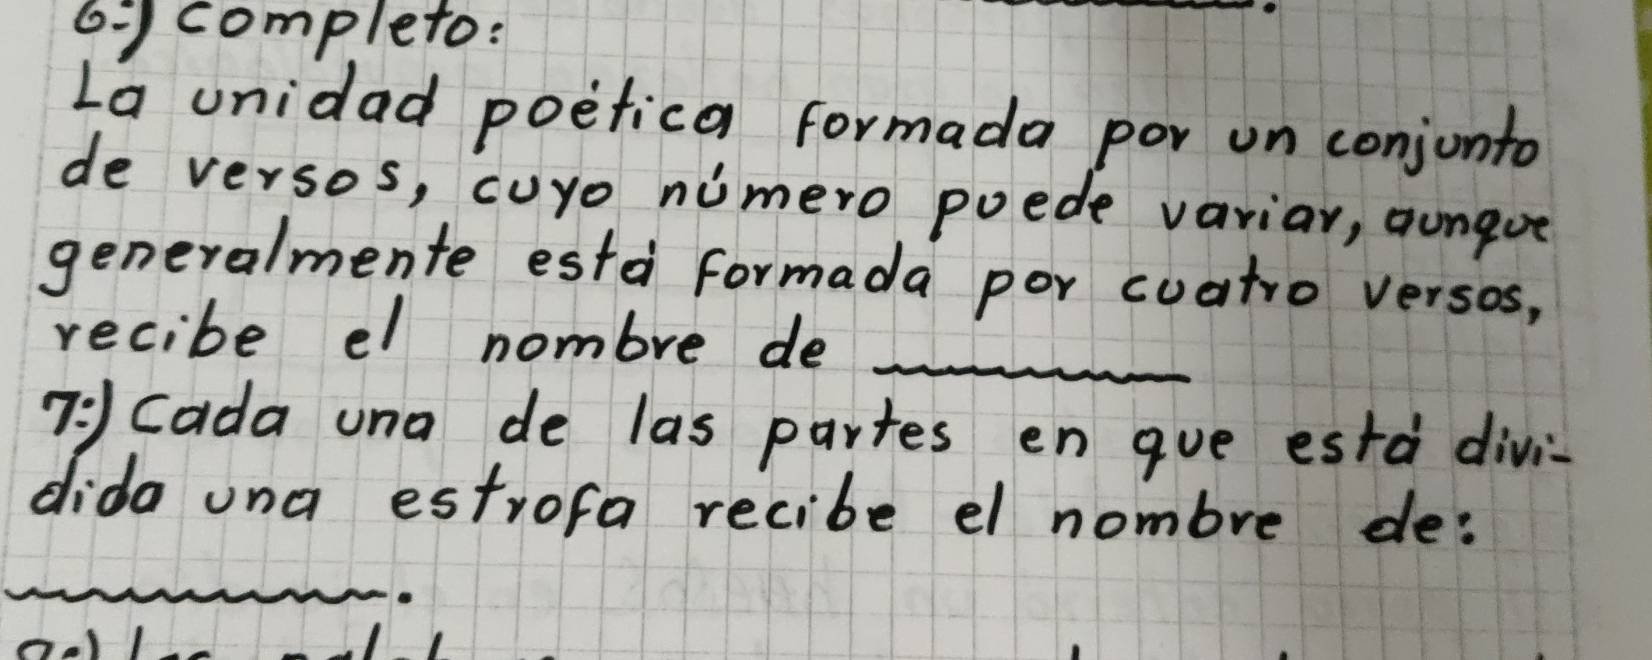 6:) completo:
La unidad poética formada por un conjunto
de versos, cuyo número puede variar, aunque
generalmente está formada por cuatro versos,
recibe el nombre de ________
7:) Cada una de las partes en que está divi-
dida una estrofa recibe el nombre de:
________.